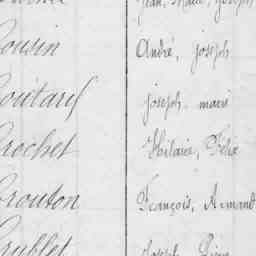 Jean, Marie, Joseph
Cousin André, joseph
joseph marie
Crochet Hilaire, Félix
Crouton François, Armand
Joseph